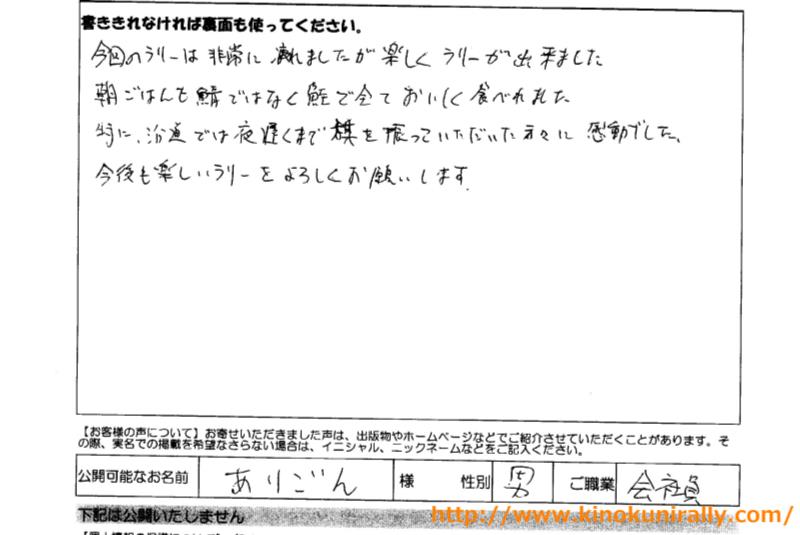 書ききれなければ裏面も使ってください。
今回のラリーは非常に疲れましたが楽しくラリーが出来ました
朝ごはんも鯖ではなく鮭で全ておいしく食べれました
特に、沿道では夜遅くまで旗を振っていただいた方々に感動でした、
今後も楽しいラリーをよろしくお願いします.
【お客様の声について】お寄せいただきました声は、出版物やホームページなどでご紹介させていただくことがあります。そ
の際、実名での掲載を希望なさらない場合は、イニシャル、ニックネームなどをご記入ください。
公開可能なお名前 ありごん 様 性別 男 ご職業 会社員
下記は公開いたしません
http://www.kinokunirally.com/